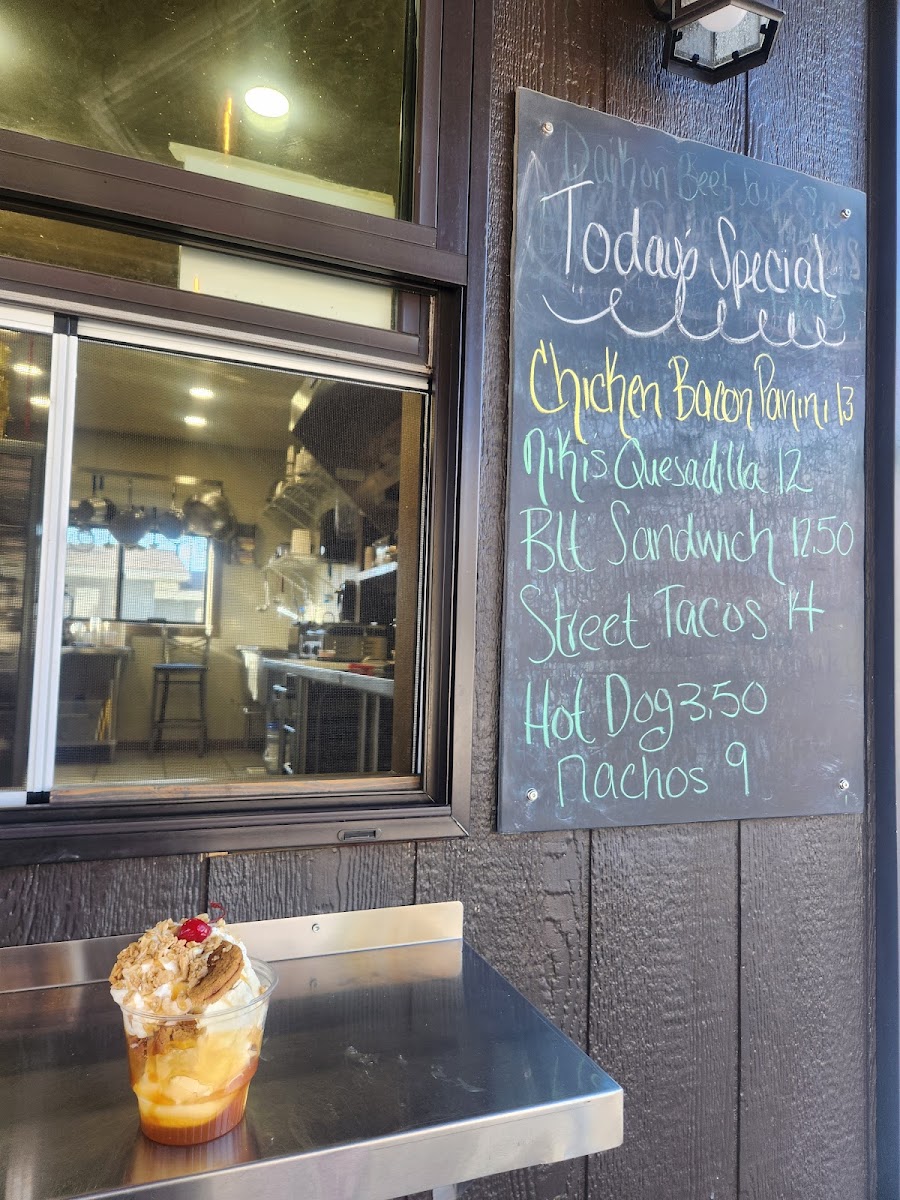 Daikon Beef
Today's Special
Chicken Bacon Panini 13
Niki's Quesadilla 12
Blt Sandwich 12.50
Street Tacos 14
Hot Dog 3.50
Nachos 9